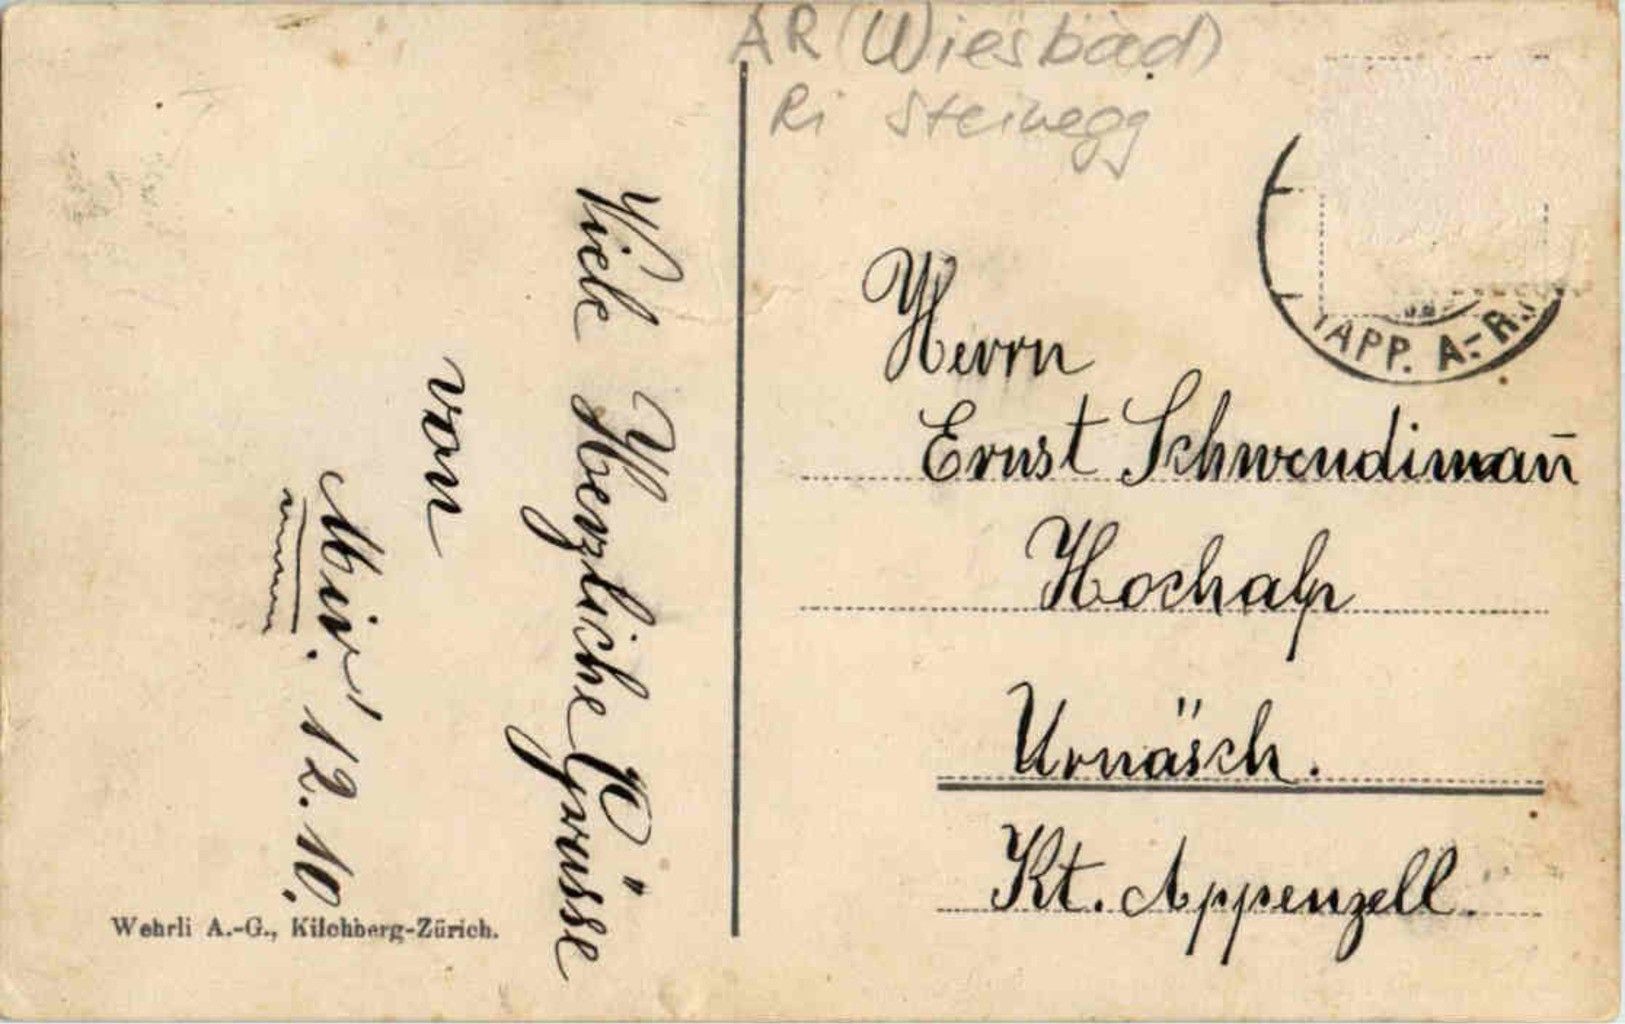 AR (Wiesbad)
Ri Steinegg
(APP. A.-R.)
Herrn
Ernst Schwendiman̄
Hochalp
Urnäsch.
Kt. Appenzell.
Viele Herzliche Grüsse
von
Mir! 12.10.
Wehrli A.-G., Kilchberg-Zürich.